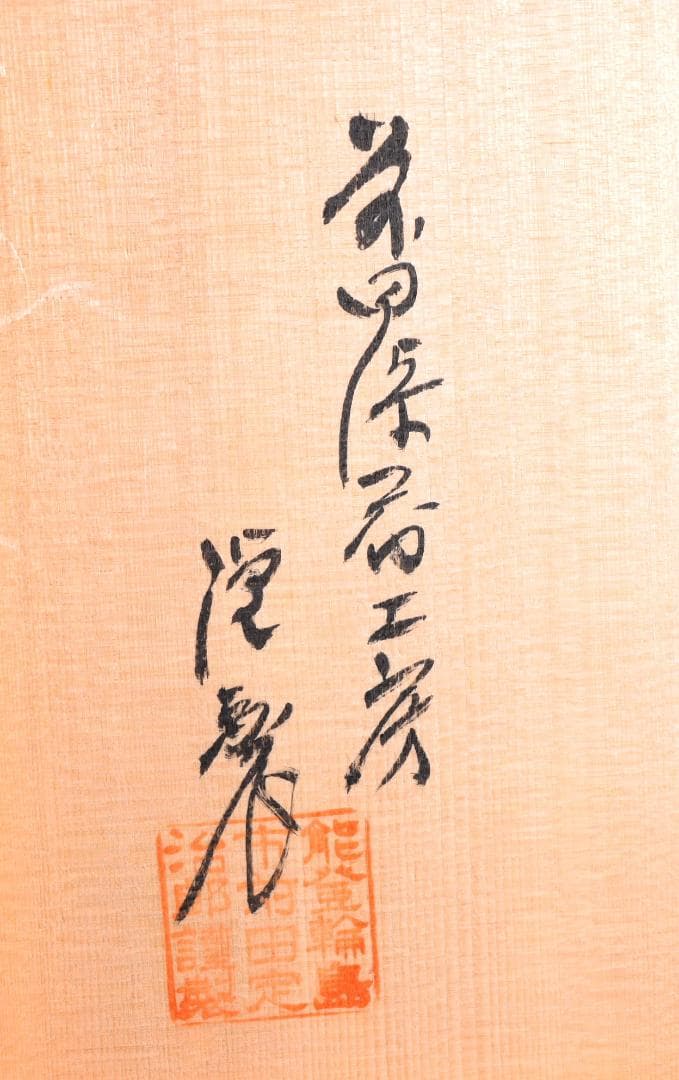 前田漆器工房
謹製
能登輪島
市前田定
治郎謹製